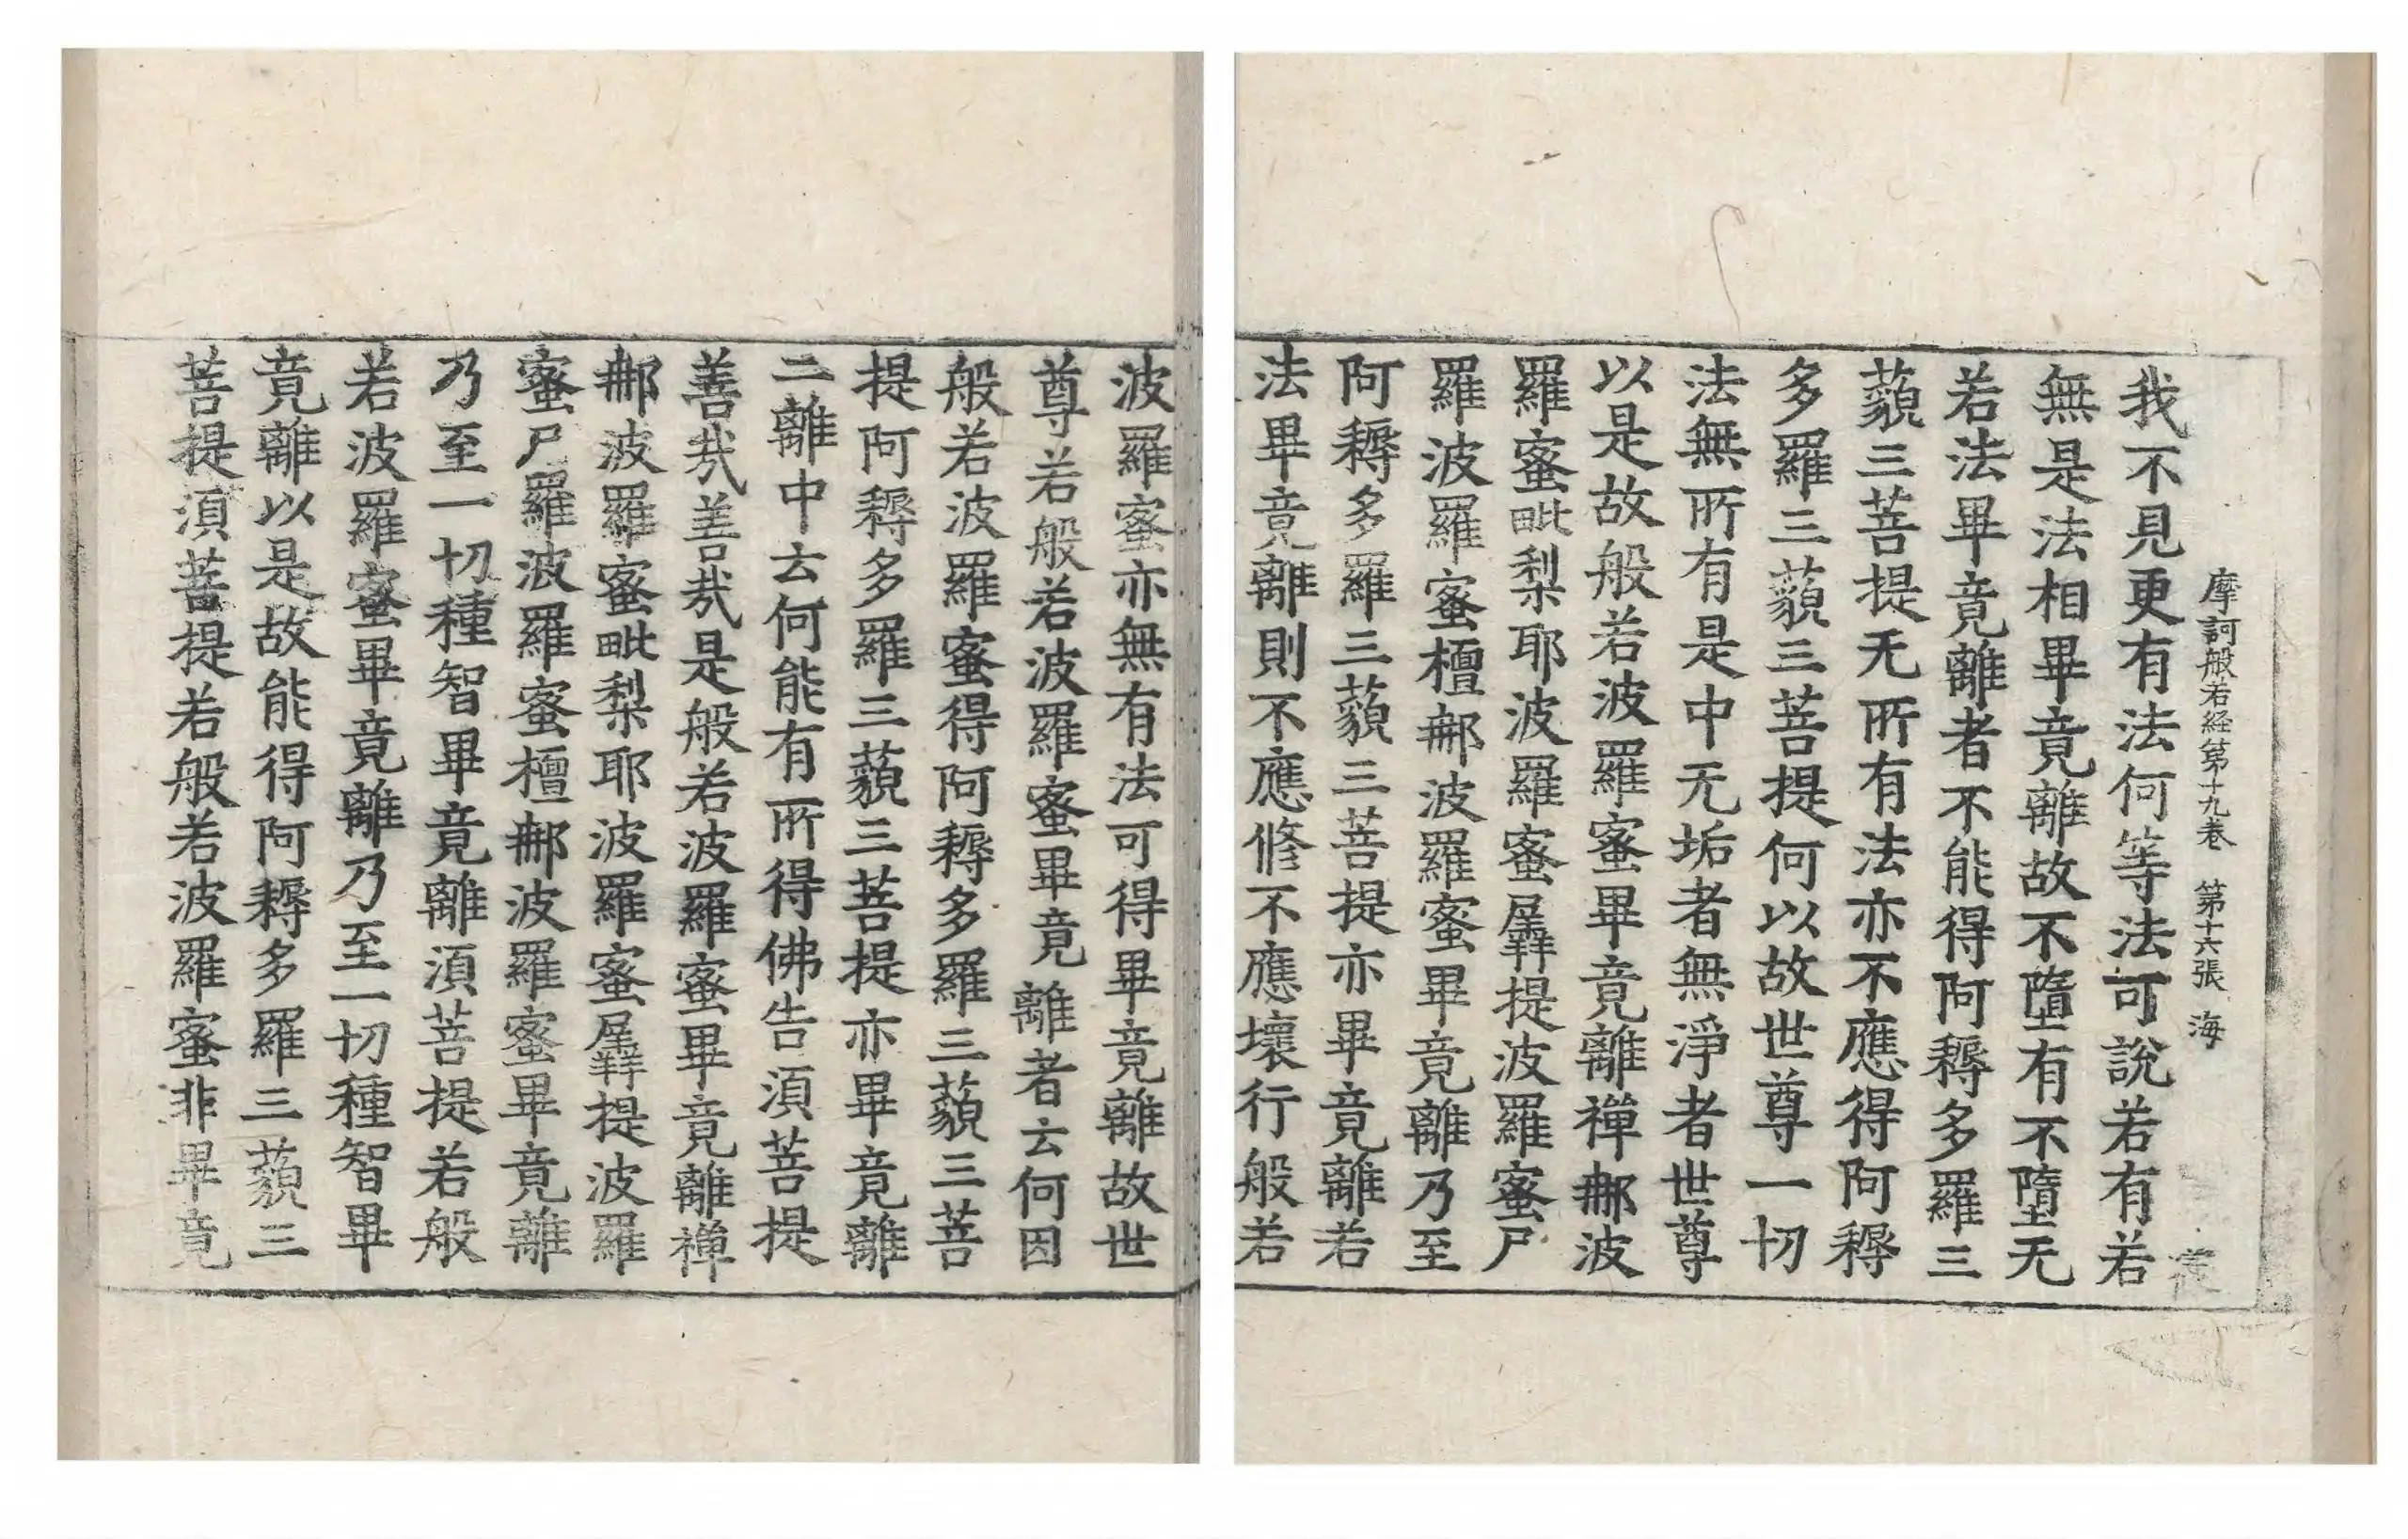 摩訶般若経第十九卷 第十六張 海
我不見更有法何等法可說若有若
無是法相畢竟離故不墮有不墮无
若法畢竟離者不能得阿耨多羅三
藐三菩提无所有法亦不應得阿耨
多羅三藐三菩提何以故世尊一切
法無所有是中无垢者無淨者世尊
以是故般若波羅蜜畢竟離禪那波
羅蜜毗梨耶波羅蜜羼提波羅蜜尸
羅波羅蜜檀那波羅蜜畢竟離乃至
阿耨多羅三藐三菩提亦畢竟離若
法畢竟離則不應修不應壞行般若
波羅蜜亦無有法可得畢竟離故世
尊若般若波羅蜜畢竟離者云何因
般若波羅蜜得阿耨多羅三藐三菩
提阿耨多羅三藐三菩提亦畢竟離
二離中云何能有所得佛告湏菩提
善哉善哉是般若波羅蜜畢竟離禪
那波羅蜜毗梨耶波羅蜜羼提波羅
蜜尸羅波羅蜜檀那波羅蜜畢竟離
乃至一切種智畢竟離湏菩提若般
若波羅蜜畢竟離乃至一切種智畢
竟離以是故能得阿耨多羅三藐三
菩提湏菩提若般若波羅蜜非畢竟